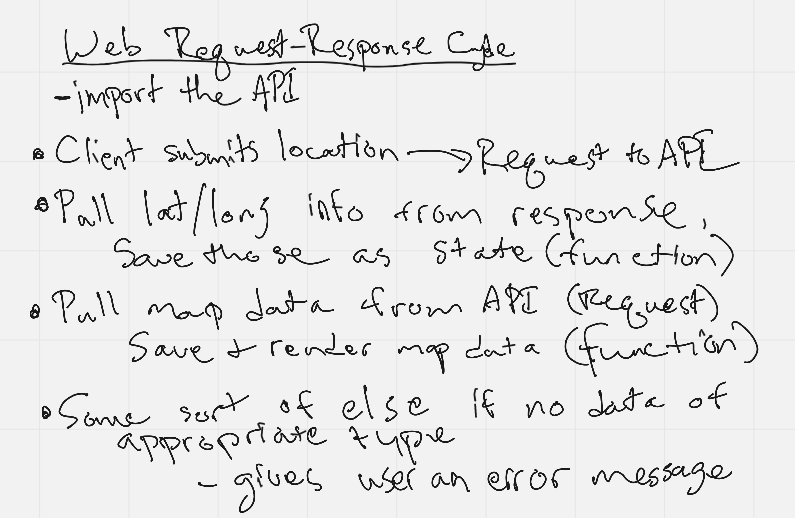 Web Request-Response Cycle
-import the API
• Client submits location → Request to API
• Pull lat/long info from response,
Save those as state (function)
• Pull map data from API (Request)
Save + render map data (function)
• Some sort of else if no data of
appropriate type
- gives user an error message